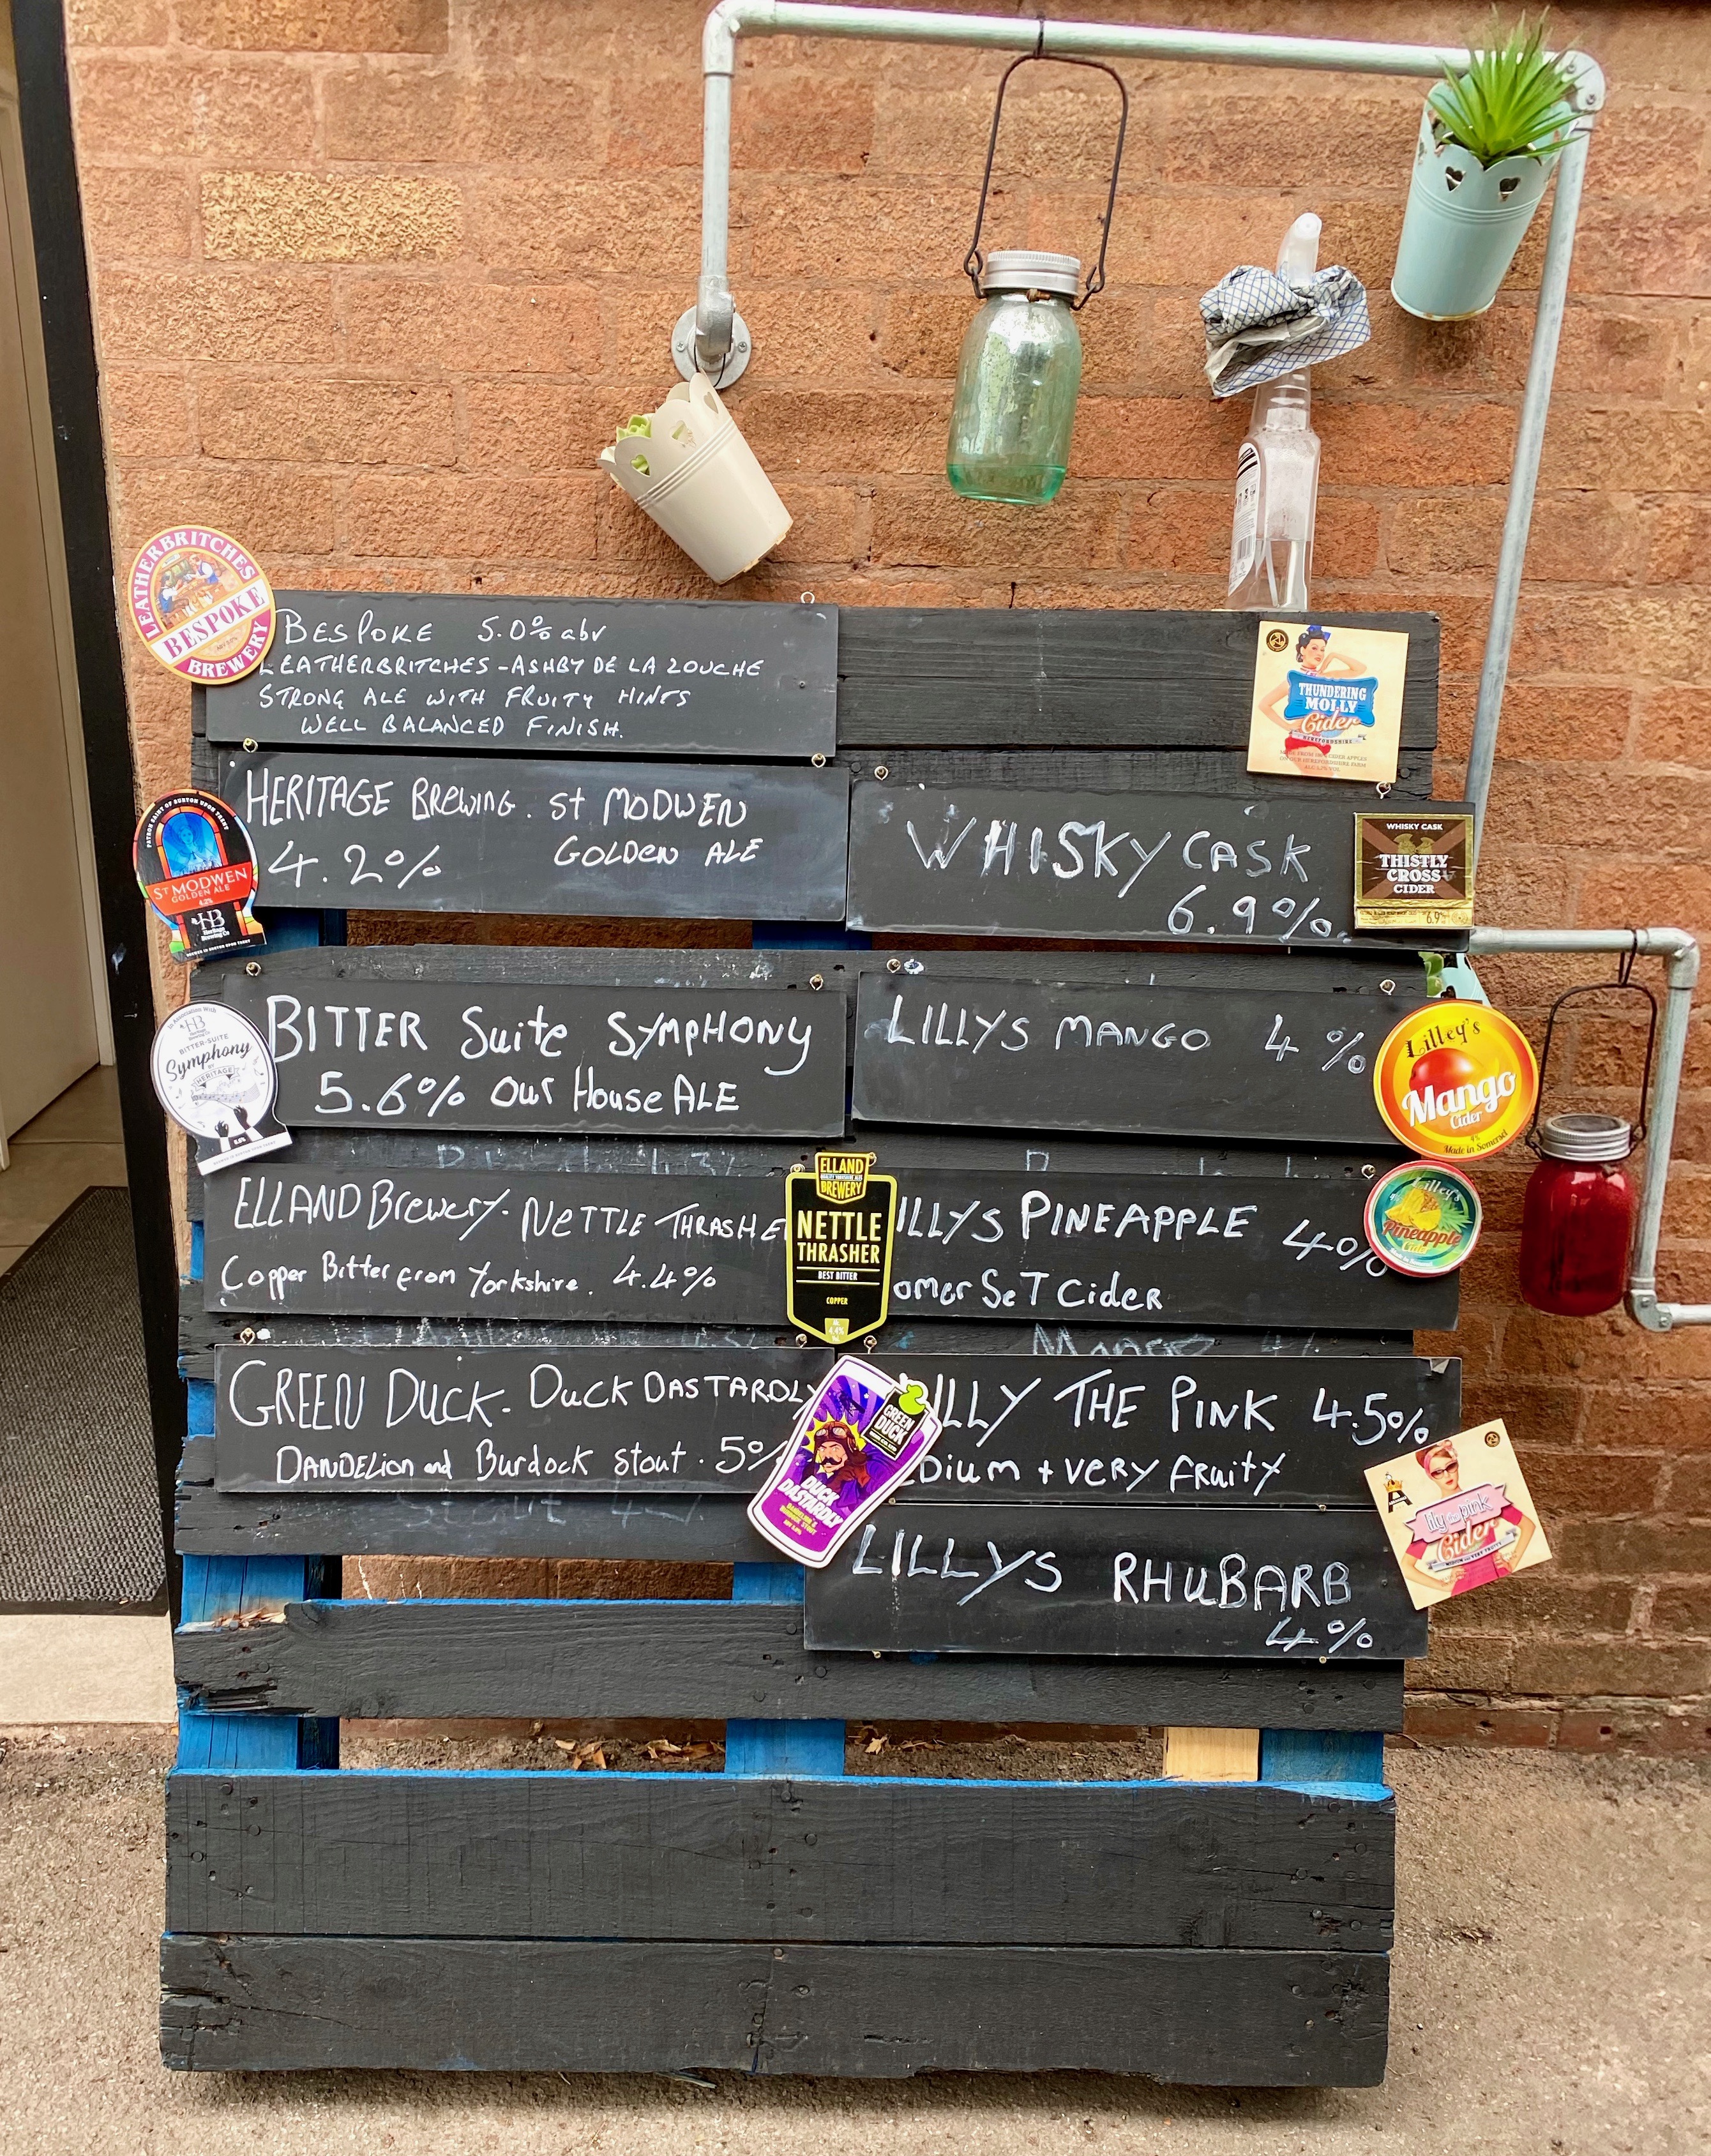 LEATHERBRITCHES
BESPOKE
BREWERY
BESPOKE 5.0% abv
LEATHERBRITCHES - ASHBY DE LA ZOUCHE
STRONG ALE WITH FRUITY HINTS
WELL BALANCED FINISH.
PATRON SAINT OF BURTON UPON TRENT
ST MODWEN
GOLDEN ALE
4.2%
HB
Heritage
Brewing Co
HERITAGE BREWING. St MODWEN
4.2% GOLDEN ALE
In Association With
HB
BITTER-SUITE
Symphony
HERITAGE
5.6%
BITTER Suite SYMPHONY
5.6% Our House ALE
ELLAND Brewery. NETTLE THRASHE
Copper Bitter From Yorkshire. 4.4%
ELLAND
BREWERY
NETTLE
THRASHER
BEST BITTER
COPPER
4.4%
GREEN DUCK - DUCK DASTARDLY
DANDELion and Burdock stout. 5%
GREEN
DUCK
DUCK
DASTARDLY
DANDELION &
BURDOCK STOUT
THUNDERING
MOLLY
Cider
HEREFORDSHIRE
WHISKY CASK
6.9%.
WHISKY CASK
THISTLY
CROSS
CIDER
6.9%
LILLYS MANGO 4%
Lilley's
Mango
Cider
4%
Made in Somerset
ILLYS PINEAPPLE 4%
omerSeT Cider
Lilley's
Pineapple
Mango 4%
ILLY THE PINK 4.5%
EDium + VERY Fruity
lily the pink
Cider
LILLYS RHUBARB
4%